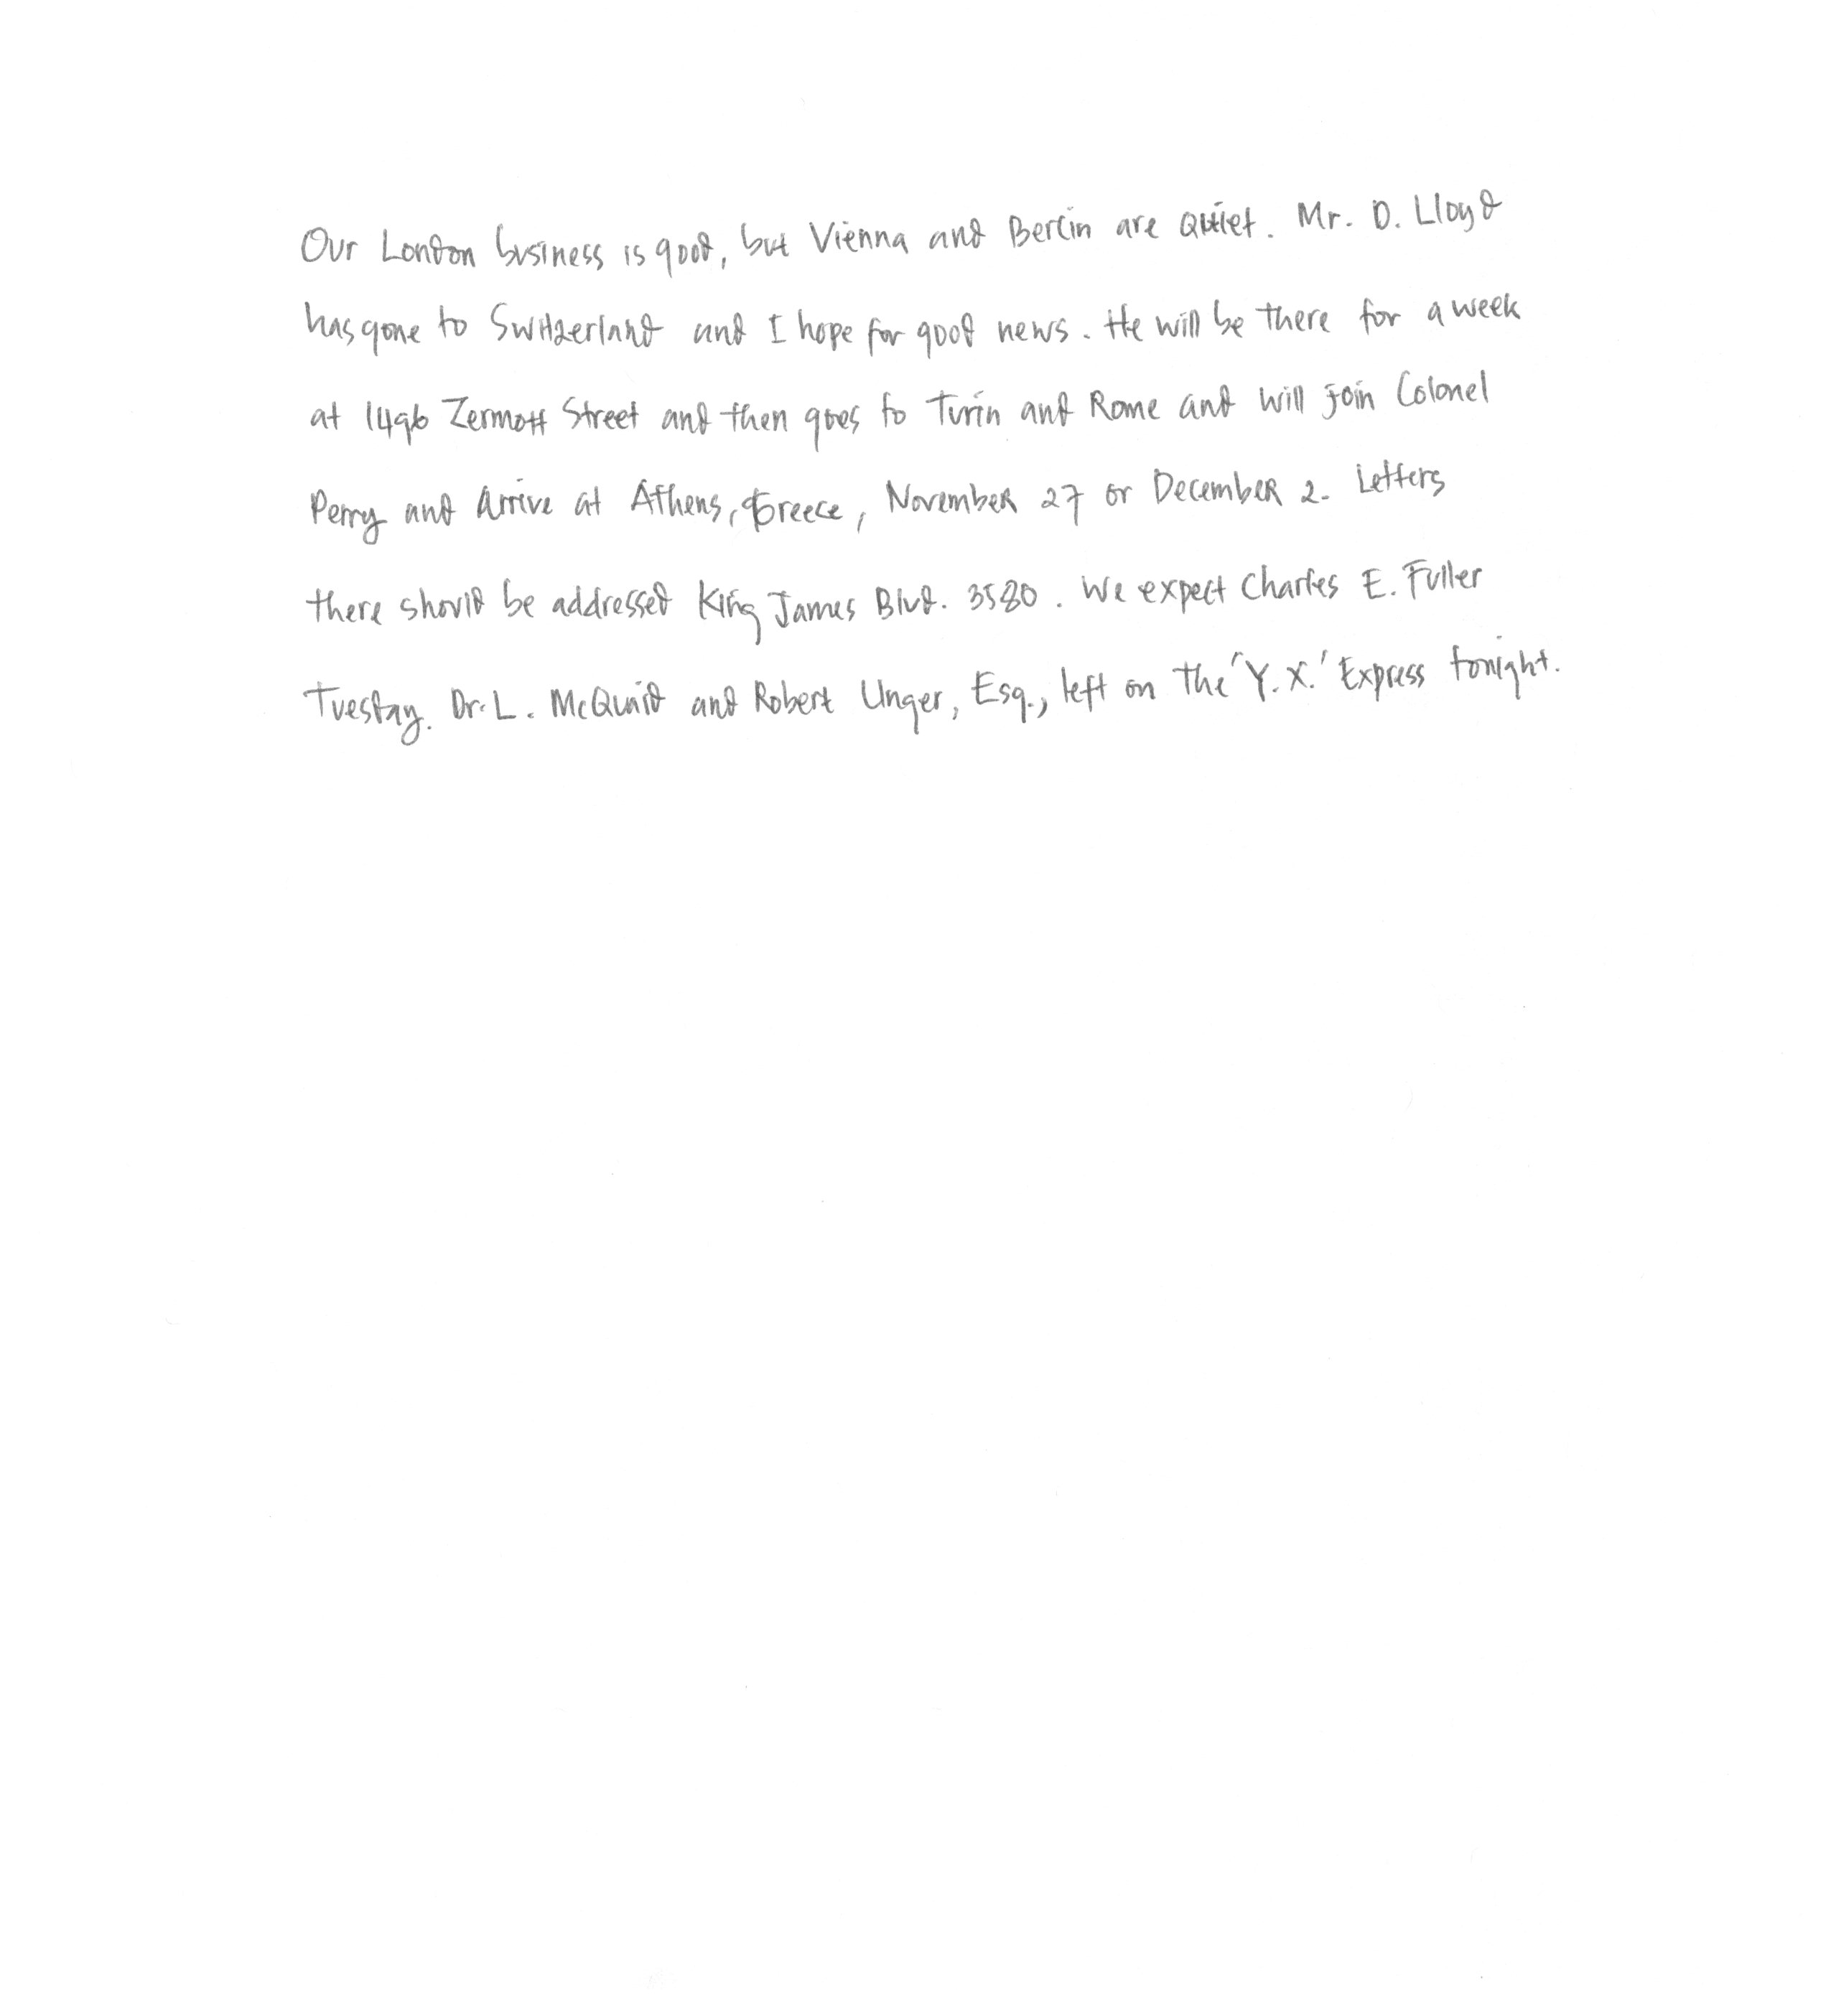 Our London business is good, but Vienna and Berlin are quiet. Mr. D. Lloyd
has gone to Switzerland and I hope for good news. He will be there for a week
at 1496 Zermott Street and then goes to Turin and Rome and will join Colonel
Perry and arrive at Athens, Greece, November 27 or December 2. Letters
there should be addressed King James Blvd. 3580. We expect Charles E. Fuller
Tuesday. Dr. L. McQuaid and Robert Unger, Esq., left on the 'Y.X.' Express tonight.